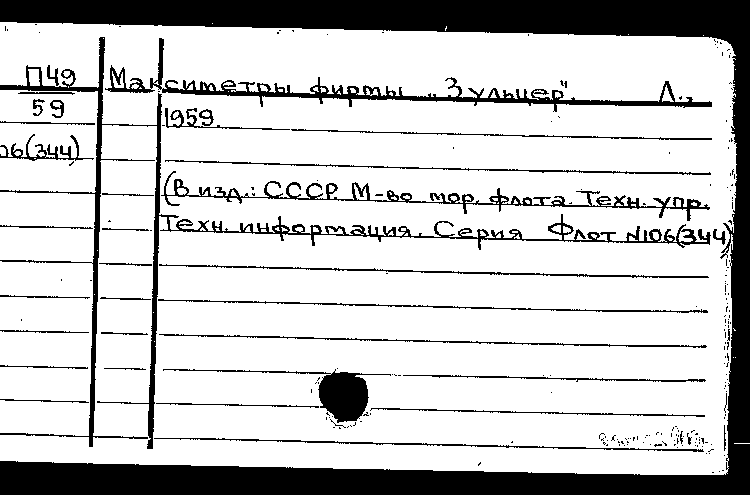 П49 Максиметры фирмы „Зульцер". Л.,
59 1959.
06(344)
(В изд.: СССР. М-во мор. флота. Техн. упр.
Техн. информация. Серия Флот №106(344)